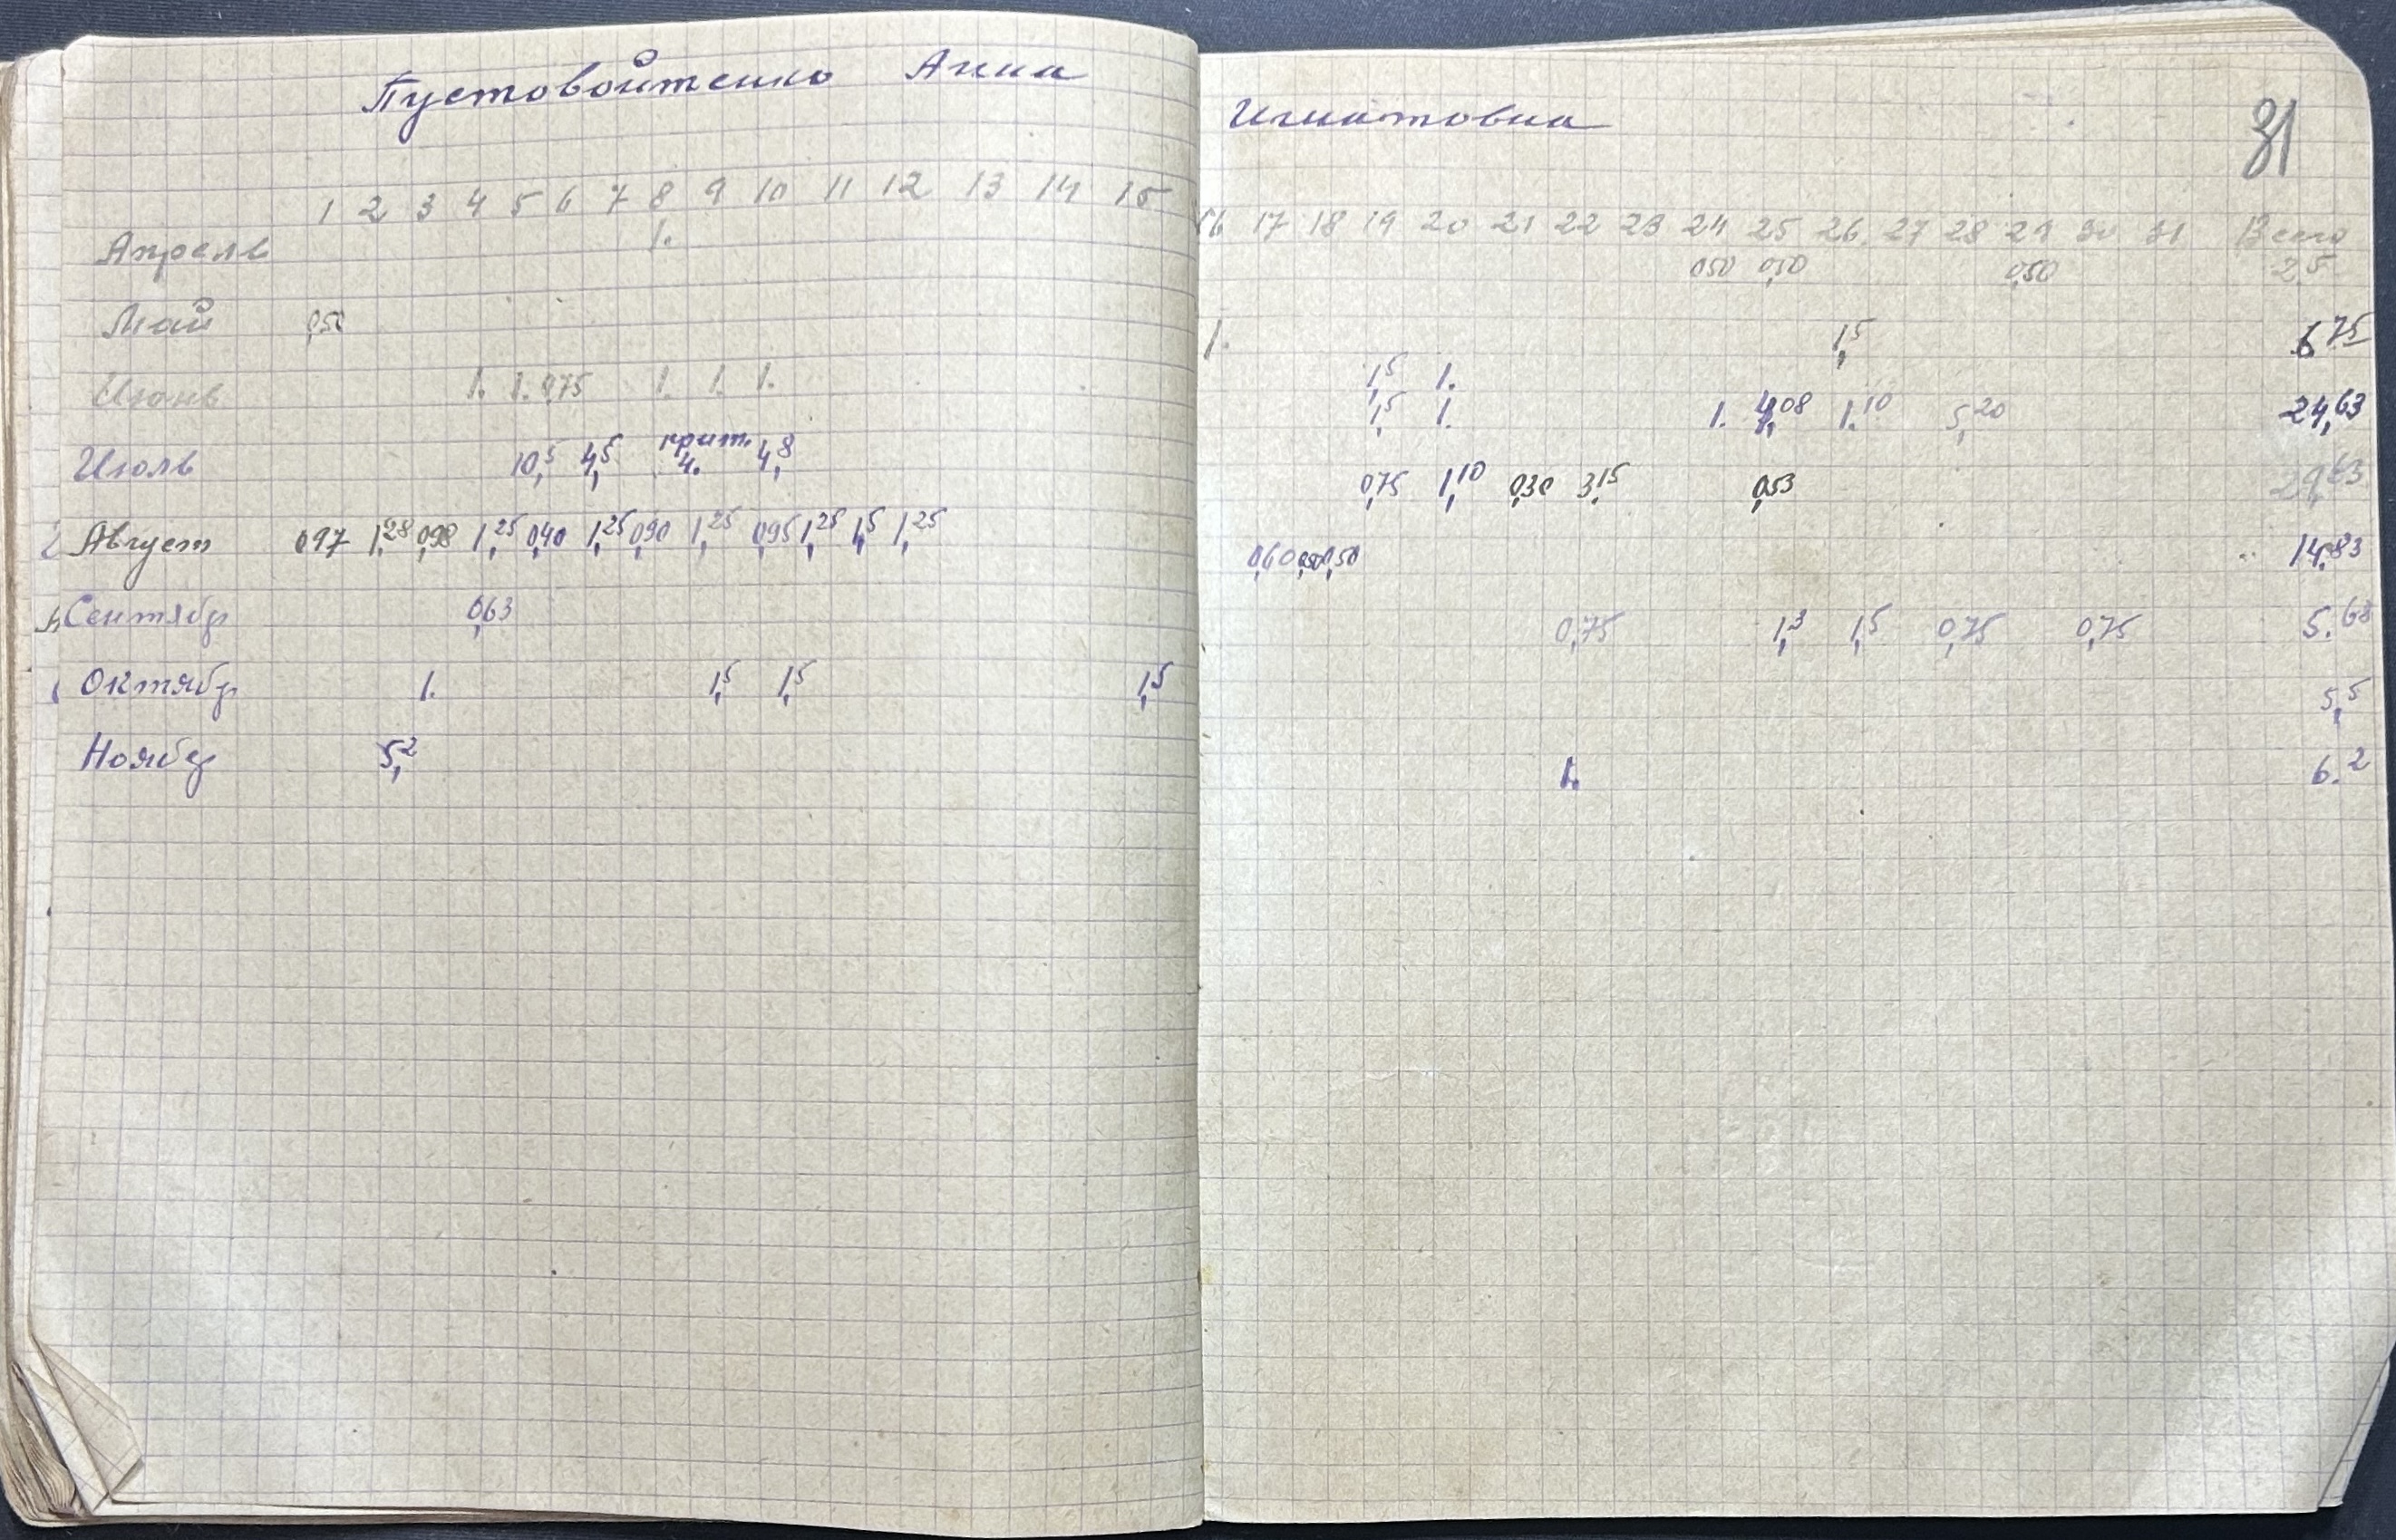 Пустовойтенко Анна Игнатовна
31
1 2 3 4 5 6 7 8 9 10 11 12 13 14 15 16 17 18 19 20 21 22 23 24 25 26 27 28 29 30 31 Всего
Апрель 1. 0,50 0,50 0,50 2,5
Май 0,50 1. 1,5 1. 1,5 6,75
Июнь 1. 1. 0,75 1. 1. 1. 1,5 1. 1. 4,08 1.10 5,20 24,63
Июль 10,5 4,5 крит. 4. 4,8 0,75 1,10 0,30 3,15 0,53 29,63
Август 0,97 1,28 0,98 1,25 0,40 1,25 0,90 1,25 0,95 1,25 1,5 1,25 0,60 0,50 14,83
Сентябр 0,63 0,75 1,3 1,5 0,75 0,75 5.68
Октябр 1. 1,5 1,5 1,5 5,5
Ноябр 5,2 1. 6.2